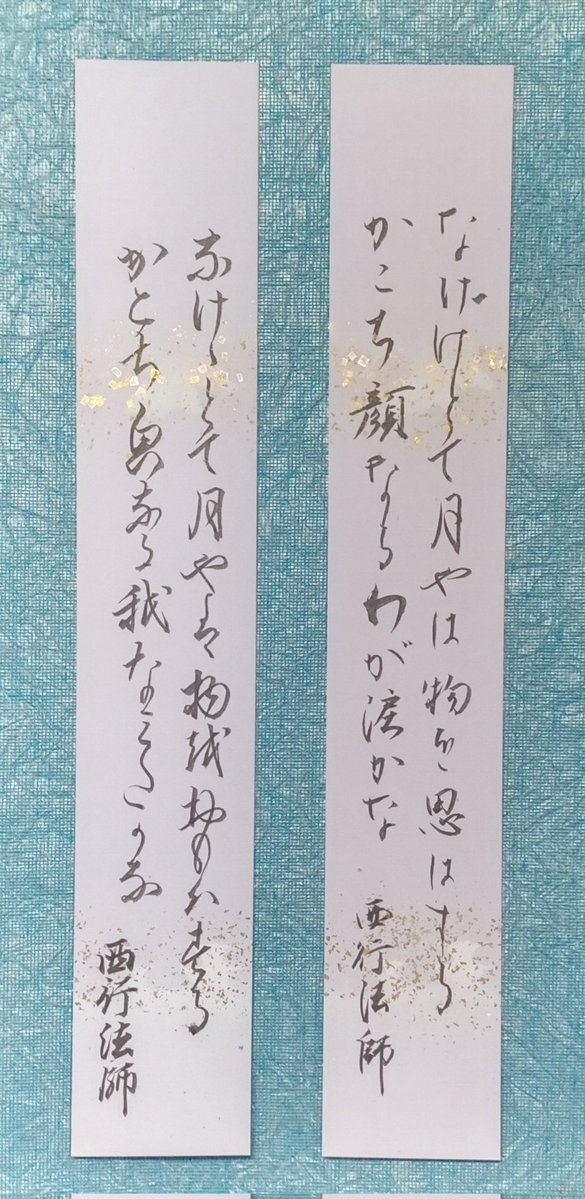 なげけとて月やは物を思はする
かこち顔なるわが涙かな
西行法師
なけゝとて月やは物越おもハする
かこち㒵なる我なみたかな
西行法師